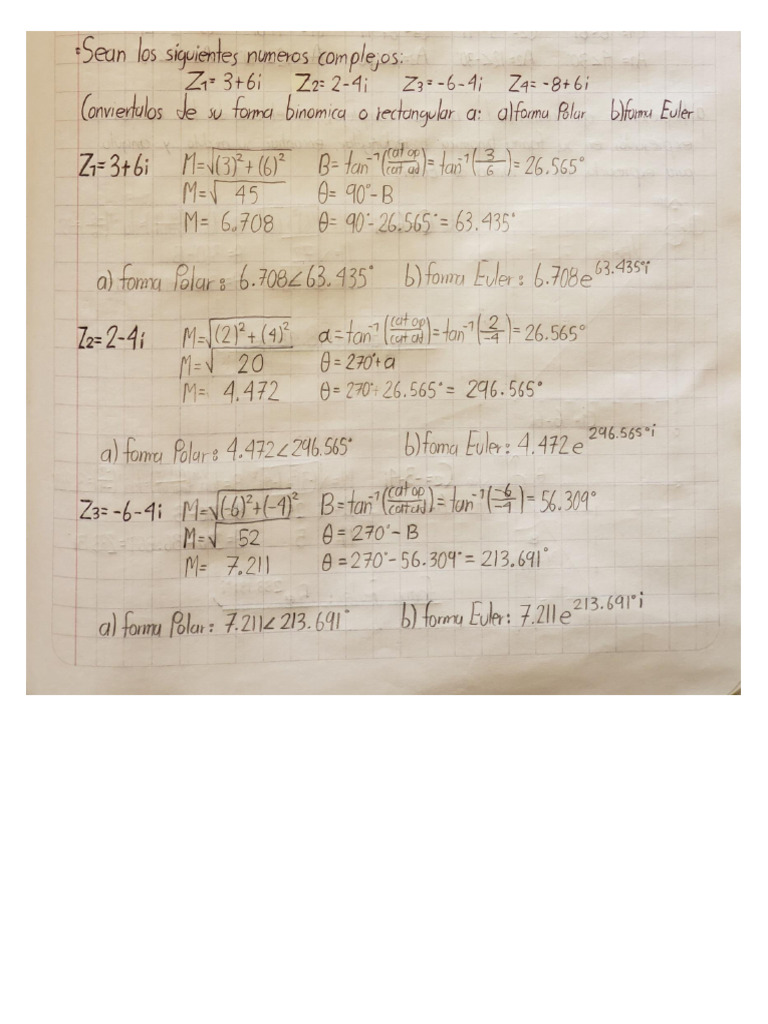 •Sean los siguientes numeros complejos:
Z1= 3+6i Z2= 2-4i Z3=-6-4i Z4= -8+6i
Conviertalos de su forma binomica o rectangular a: a)forma Polar b)forma Euler
Z1=3+6i M=√(3)²+(6)² B=tan⁻¹(cat op/cat ad)=tan⁻¹(3/6)=26.565°
M=√45 θ = 90°-B
M= 6.708 θ= 90°-26.565°=63.435°
a) forma Polar: 6.708∠63.435° b)forma Euler: 6.708e^63.435°i
Z2=2-4i M=√(2)²+(4)² a=tan⁻¹(cat op/cat ad)=tan⁻¹(2/-4)=26.565°
M=√20 θ=270°+a
M= 4.472 θ=270°+26.565°= 296.565°
a) forma Polar: 4.472∠296.565° b)foma Euler: 4.472e^296.565°i
Z3=-6-4i M=√(-6)²+(-4)² B=tan⁻¹(cat op/cat ad)=tan⁻¹(-6/-4)=56.309°
M=√52 θ=270°-B
M= 7.211 θ=270°-56.309°=213.691°
a) forma Polar: 7.211∠213.691° b) forma Euler: 7.211e^213.691°i